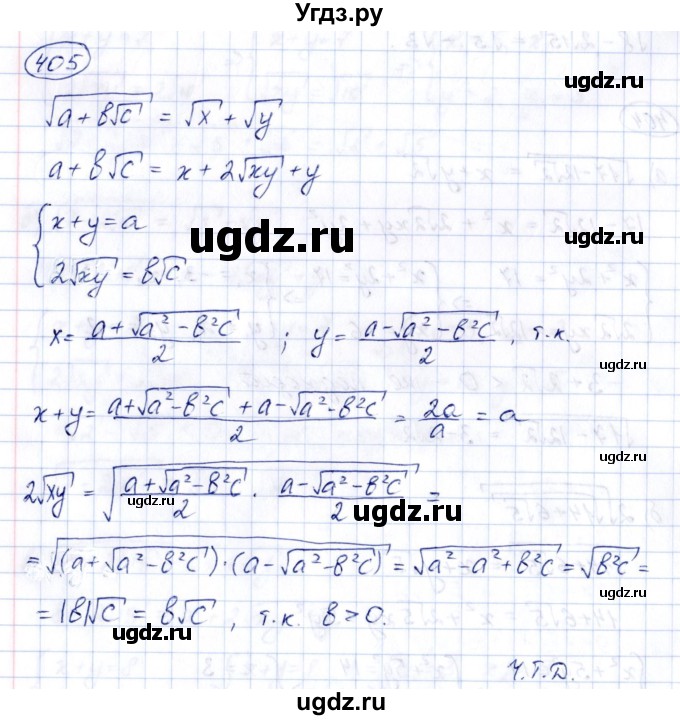 Угдз.ру
405
√(a + в√c) = √x + √y
ugdz.ru
a + в√c = x + 2√(xy) + y
{ x + y = a
2√(xy) = в√c.
ugdz.ru
ugdz.ru
x = (a + √(a² − в²c))/2 ; y = (a − √(a² − в²c))/2, т.к.
ugdz.ru
x + y = (a + √(a² − в²c) + a − √(a² − в²c))/2 = 2a/a = a
ugdz.ru
2√(xy) = √((a + √(a² − в²c))/2 · (a − √(a² − в²c))/2) =
ugdz.ru
ugdz.ru
= √((a + √(a² − в²c)) · (a − √(a² − в²c))) = √(a² − a² + в²c) = √(в²c) =
ugdz.ru
= |в|√c = в√c, т.к. в > 0.
ugdz.ru
ч.т.д.
ugdz.ru